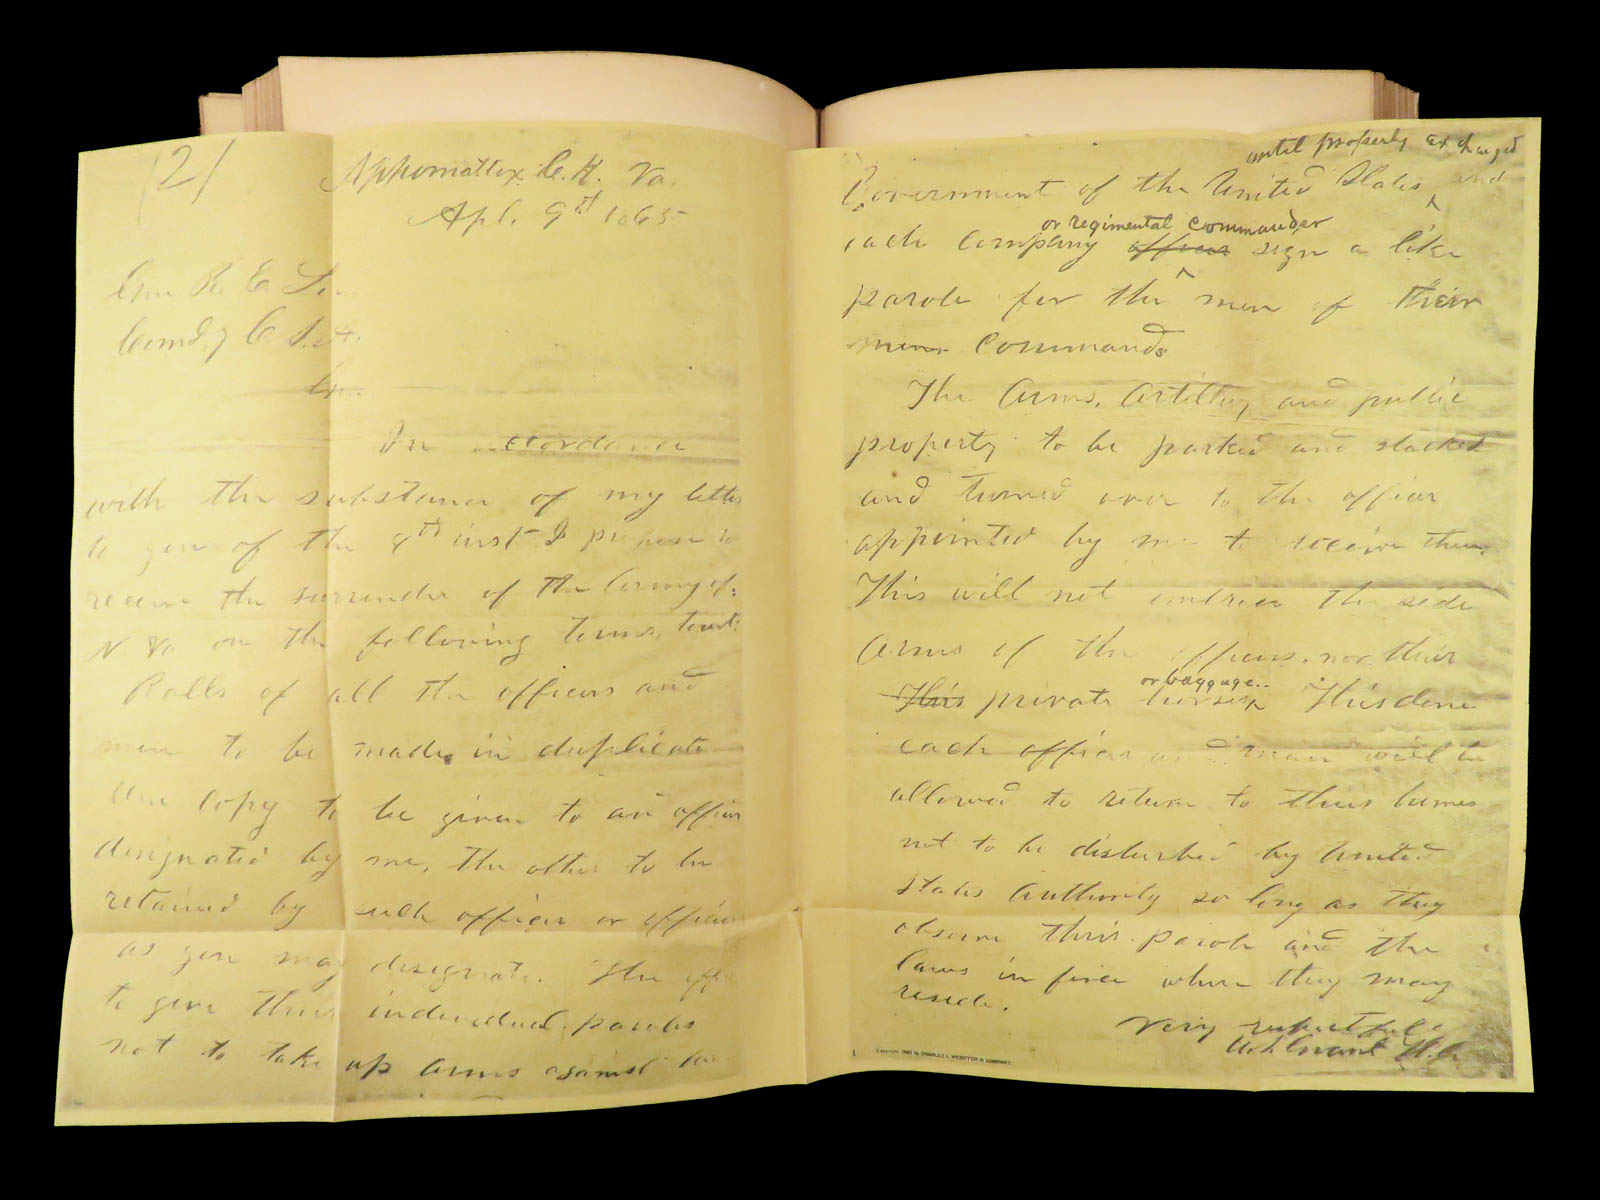 (2)
Apkomattox C. H. Va.
Apl. 9th 1865
Gen R. E. Lee
Comd.g C. S. A.
Gen.
In accordance
with the substance of my letter
to you of the 8th inst I propose to
receive the surrender of the Army of
N. Va on the following terms, towit:
Rolls of all the officers and
men to be made in duplicate
One copy to be given to an officer
designated by me, the other to be
retained by such officer or officers
as you may designate. The officers
to give their individual paroles
not to take up arms against the
until properly exchanged
Government of the United States and
or regimental commander
each company officer sign a like
parole for the men of their
commands
The Arms, Artillery and public
property to be parked and stacked
and turned over to the officer
appointed by me to receive them.
This will not embrace the side
Arms of the officers, nor their
or baggage..
This private horses This done
each officer and man will be
allowed to return to their homes
not to be disturbed by United
States Authority so long as they
observe their parole and the
laws in force where they may
reside.
Very respectfully
U. S. Grant Lt. Gn
Copyright 1885 by CHARLES L. WEBSTER & COMPANY